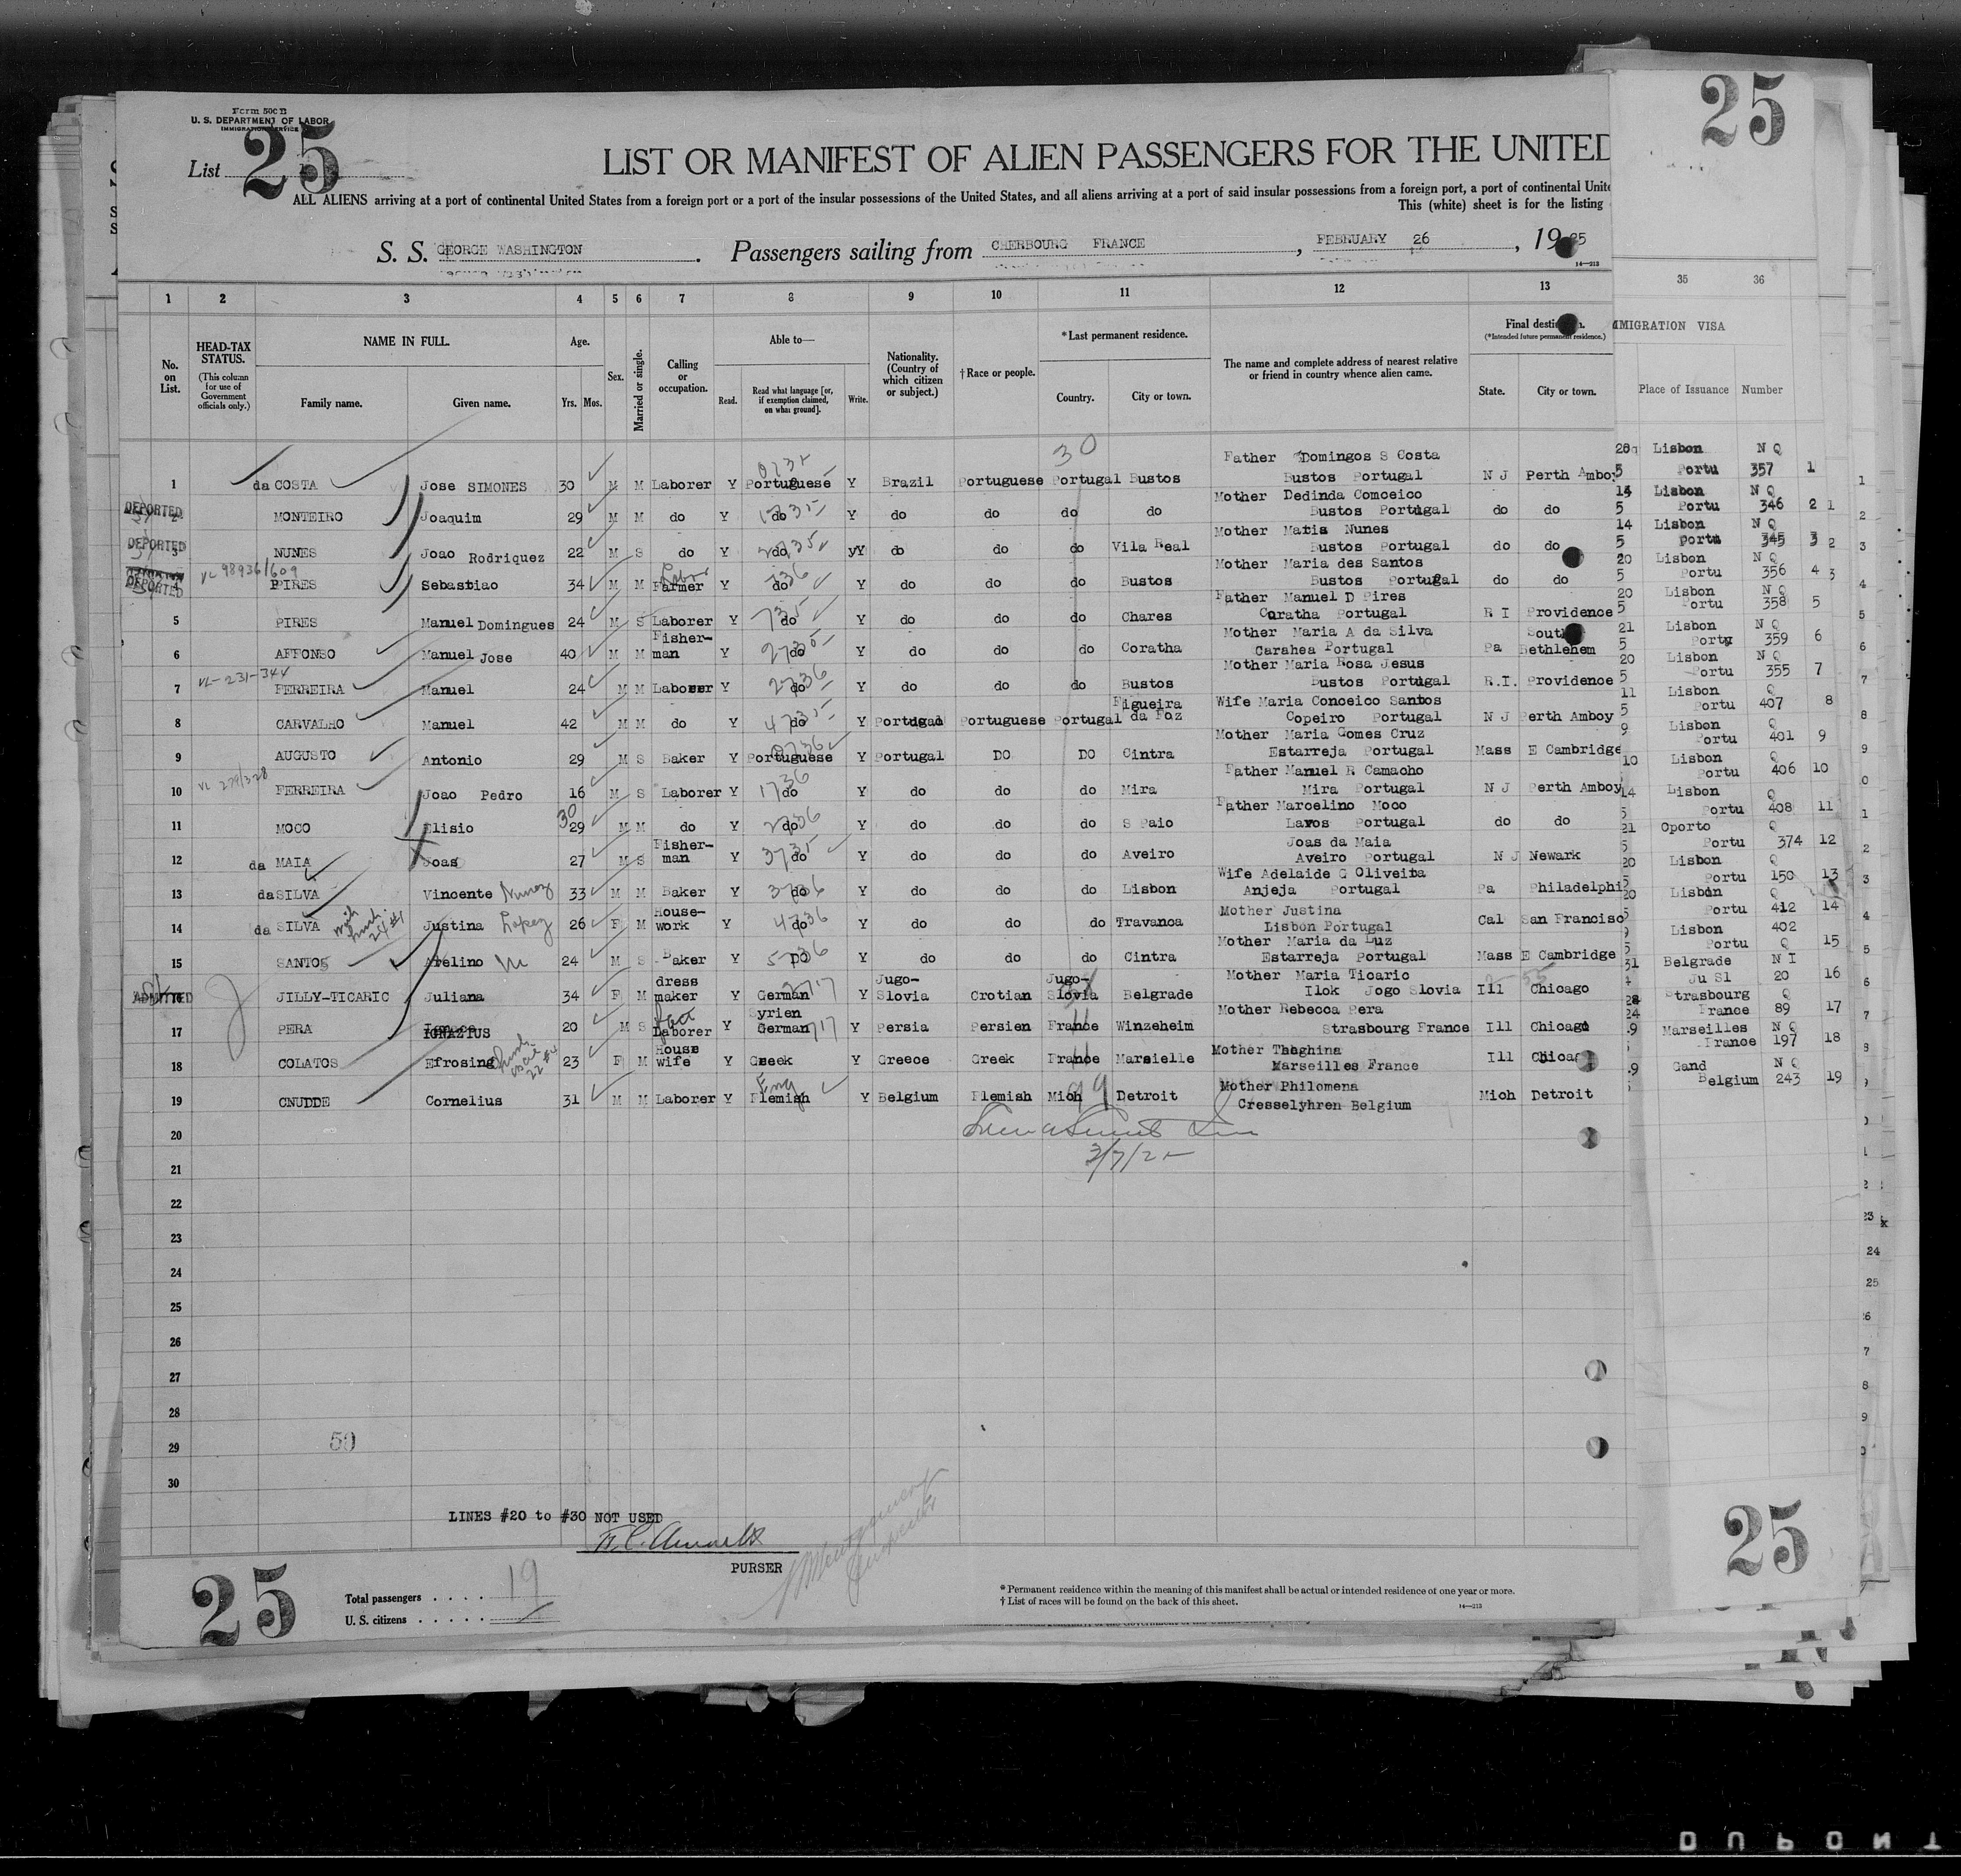 Form 500 B
U. S. DEPARTMENT OF LABOR
IMMIGRATION SERVICE
List 25
25
LIST OR MANIFEST OF ALIEN PASSENGERS FOR THE UNITED
ALL ALIENS arriving at a port of continental United States from a foreign port or a port of the insular possessions of the United States, and all aliens arriving at a port of said insular possessions from a foreign port, a port of continental Unite
This (white) sheet is for the listing
S. S. GEORGE WASHINGTON . Passengers sailing from CHERBOURG FRANCE , FEBRUARY 26 , 1925
14—213
1 2 3 4 5 6 7 8 9 10 11 12 13 35 36
No. on List.
HEAD-TAX STATUS.
(This column for use of Government officials only.)
NAME IN FULL.
Family name. Given name.
Age.
Yrs. Mos.
Sex.
Married or single.
Calling or occupation.
Able to—
Read. Read what language [or, if exemption claimed, on what ground]. Write.
Nationality. (Country of which citizen or subject.)
†Race or people.
*Last permanent residence.
Country. City or town.
The name and complete address of nearest relative or friend in country whence alien came.
Final destin n.
(*Intended future permanent residence.)
State. City or town.
MMIGRATION VISA
Place of Issuance Number
30
1 da COSTA Jose SIMONES 30 M M Laborer Y Portuguese Y Brazil Portuguese Portugal Bustos Father Domingos S Costa Bustos Portugal N J Perth Amboy Lisbon Portu N Q 357 1
DEPORTED 2 MONTEIRO Joaquim 29 M M do Y do Y do do do do Mother Dedinda Comceico Bustos Portugal do do Lisbon Portu N Q 346 2
DEPORTED 3 NUNES Joao Rodriquez 22 M S do Y do yY do do do Vila Real Mother Matis Nunes Bustos Portugal do do Lisbon Portu N Q 345 3
DEPORTED 4 VL 98936/609 PIRES Sebastiao 34 M M Farmer Y do Y do do do Bustos Mother Maria des Santos Bustos Portugal do do Lisbon Portu N Q 356 4
5 PIRES Manuel Domingues 24 M S Laborer Y do Y do do do Chares Father Manuel D Pires Coratha Portugal R I Providence Lisbon Portu N Q 358 5
6 AFFONSO Manuel Jose 40 M M Fisher-man Y do Y do do do Coratha Mother Maria A da Silva Carahea Portugal Pa South Bethlehem Lisbon Portu N Q 359 6
7 VL-231-344 FERREIRA Manuel 24 M M Laborer Y do Y do do do Bustos Mother Maria Rosa Jesus Bustos Portugal R.I. Providence Lisbon Portu N Q 355 7
8 CARVALHO Manuel 42 M M do Y do Y Portugao Portuguese Portugal Figueira da Foz Wife Maria Conceico Santos Copeiro Portugal N J Perth Amboy Lisbon Portu Q 407 8
9 AUGUSTO Antonio 29 M S Baker Y Portuguese Y Portugal DO DO Cintra Mother Maria Gomes Cruz Estarreja Portugal Mass E Cambridge Lisbon Portu Q 401 9
10 FERREIRA Joao Pedro 16 M S Laborer Y do Y do do do Mira Father Manuel R Camacho Mira Portugal N J Perth Amboy Lisbon Portu Q 406 10
11 MOCO Elisio 30 29 M M do Y do Y do do do S Paio Father Marcelino Moco Lavos Portugal do do Lisbon Portu Q 408 11
12 da MAIA Joas 27 M S Fisher-man Y do Y do do do Aveiro Joas da Maia Aveiro Portugal N J Newark Oporto Portu Q 374 12
13 da SILVA Vincente Nunez 33 M M Baker Y do Y do do do Lisbon Wife Adelaide C Oliveita Anjeja Portugal Pa Philadelphi Lisbon Portu Q 150 13
14 da SILVA Justina Lopez 26 F M House-work Y do Y do do do Travanca Mother Justina Lisbon Portugal Cal San Francisc Lisbon Portu Q 412 14
15 SANTOS Avelino 24 M S Baker Y DO Y do do do Cintra Mother Maria da Luz Estarreja Portugal Mass E Cambridge Lisbon Portu 402 Q 15
ADMITTED 16 JILLY-TICARIC Juliana 34 F M dress maker Y German Y Jugo-Slovia Crotian Jugo-Slovia Belgrade Mother Maria Ticaric Ilok Jogo Slovia Ill Chicago Belgrade Ju Sl N I 20 16
17 PERA IGNAZIUS 20 M S Laborer Y Syrien German Y Persia Persien France Winzeheim Mother Rebecca Pera Strasbourg France Ill Chicago Strasbourg France Q 89 17
18 COLATOS Efrosing 23 F M House wife Y Greek Y Greece Greek France Marsielle Mother Theghina Marseilles France Ill Chicag Marseilles France N Q 197 18
19 CNUDDE Cornelius 31 M M Laborer Y Flemish Eng Y Belgium Flemish Mich Detroit Mother Philomena Cresselyhren Belgium Mich Detroit Gand Belgium N Q 243 19
20
3/7/25
21
22
23
24
25
26
27
28
29 50
30
LINES #20 to #30 NOT USED
PURSER
25
25
Total passengers . . . . 19
U. S. citizens . . . . . .
* Permanent residence within the meaning of this manifest shall be actual or intended residence of one year or more.
† List of races will be found on the back of this sheet.
14—213
DUPONT